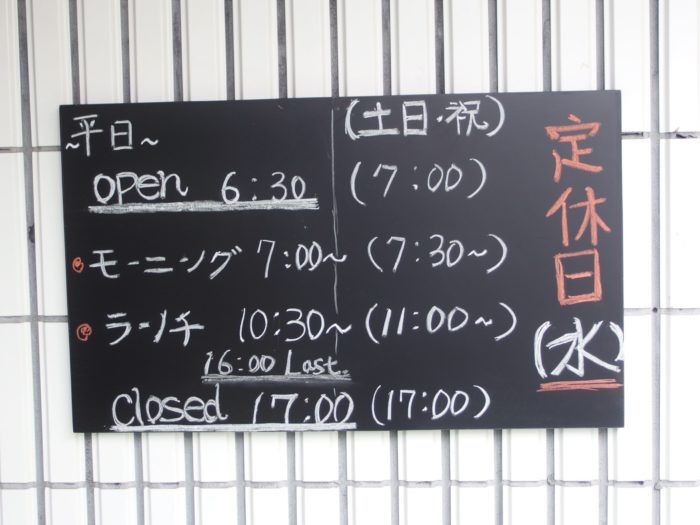 ~平日~ (土日・祝)
open 6:30 (7:00)
モーニング 7:00~ (7:30~)
ランチ 10:30~ (11:00~)
16:00 Last.
closed 17:00 (17:00)
定休日
(水)